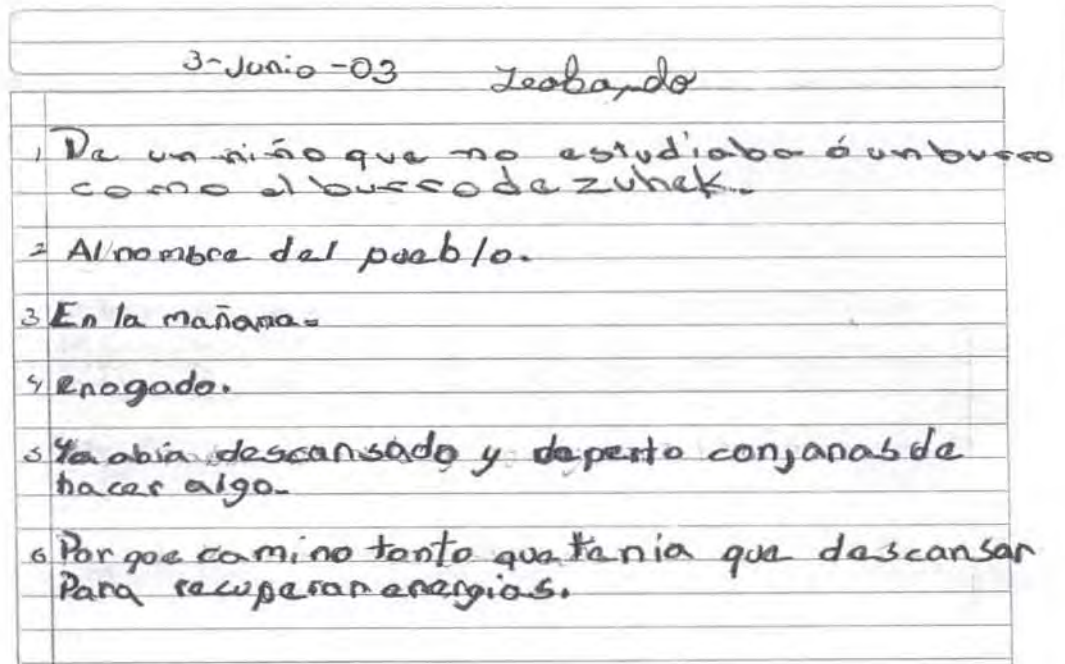 3-Junio-03 Leobardo
1 De un niño que no estudiaba ó un burro
como el burro de zuhek.
2 Al nombre del pueblo.
3 En la mañana.
4 enogado.
5 Ya abia descansado y deperto con janas de
hacer algo.
6 Por que camino tanto que tenia que descansar
Para recuperar energias.